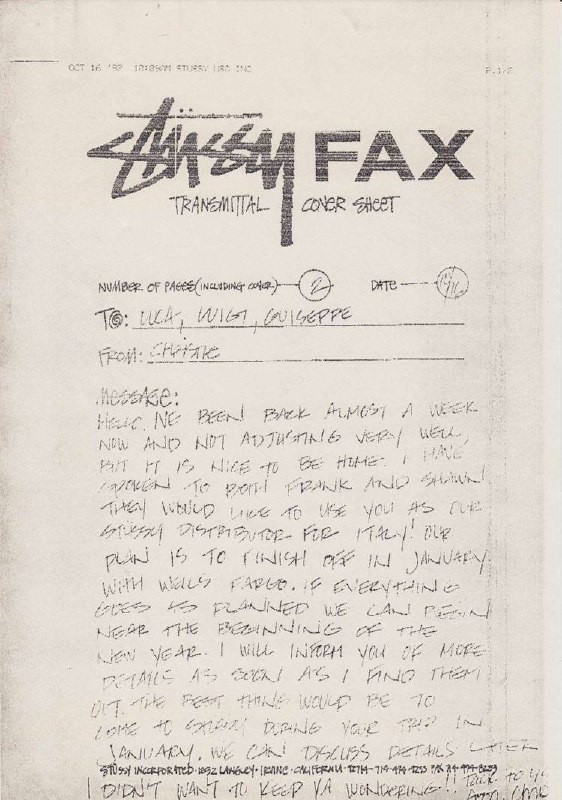 OCT 16 '92 10:29AM STUSSY USA INC P.1/2
Stüssy FAX
TRANSMITTAL COVER SHEET
NUMBER OF PAGES (INCLUDING COVER) 2 DATE 10/16
TO: LUCA, LUIGI, GUISEPPE
FROM: CHRISTIE
MESSAGE:
HELLO. I'VE BEEN BACK ALMOST A WEEK
NOW AND NOT ADJUSTING VERY WELL,
BUT IT IS NICE TO BE HOME. I HAVE
SPOKEN TO BOTH FRANK AND SHAWN.
THEY WOULD LIKE TO USE YOU AS OUR
STUSSY DISTRIBUTOR FOR ITALY! OUR
PLAN IS TO FINISH OFF IN JANUARY
WITH WELLS FARGO. IF EVERYTHING
GOES AS PLANNED WE CAN BEGIN
NEAR THE BEGINNING OF THE
NEW YEAR. I WILL INFORM YOU OF MORE
DETAILS AS SOON AS I FIND THEM
OUT. THE BEST THING WOULD BE TO
COME TO STUSSY DURING YOUR TRIP IN
JANUARY. WE CAN DISCUSS DETAILS LATER
STÜSSY INCORPORATED IRVINE CALIFORNIA 714 FAX
I DIDN'T WANT TO KEEP YA WONDERING!! TALK TO YA